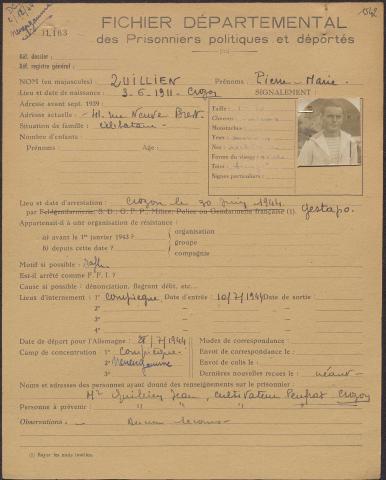 11.163
1542
FICHIER DÉPARTEMENTAL
des Prisonniers politiques et déportés
Réf. dossier :
Réf. registre général :
NOM (en majuscules) : QUILLIEN Prénoms : Pierre-Marie
Lieu et date de naissance : 3-5-1911 - Crozon SIGNALEMENT :
Adresse avant sept. 1939 :
Adresse actuelle : rue Neuve Brest
Situation de famille : célibataire
Nombre d'enfants :
Prénoms : Age :
Taille :
Cheveux :
Moustaches :
Yeux :
Nez :
Forme du visage :
Teint :
Signes particuliers :
Lieu et date d'arrestation : Crozon le 30 juin 1944
par Feldgendarmerie, S. D., G. F. P., Milice, Police ou Gendarmerie française (1). gestapo.
Appartenait-il à une organisation de résistance :
a) avant le 1er janvier 1943 ?
b) depuis cette date ?
organisation
groupe
compagnie
Motif si possible : Rafle
Est-il arrêté comme F. F. I. ?
Cause si possible : dénonciation, flagrant délit, etc...
Lieux d'internement : 1° Compiègne Date d'entrée : 10/7/1944 Date de sortie :
2°
3°
4°
Date de départ pour l'Allemagne : 28/7/1944
Camp de concentration : 1° Compiègne
2° Neuengamme
3°
Modes de correspondance :
Envoi de correspondance le :
Envoi de colis le :
Dernières nouvelles reçues le : néant
Noms et adresses des personnes ayant donné des renseignements sur le prisonnier :
Mr Quillien Jean, cultivateur Crozon
Personne à prévenir : " " " "
Observations : Aucun secours
(1) Rayer les mots inutiles.